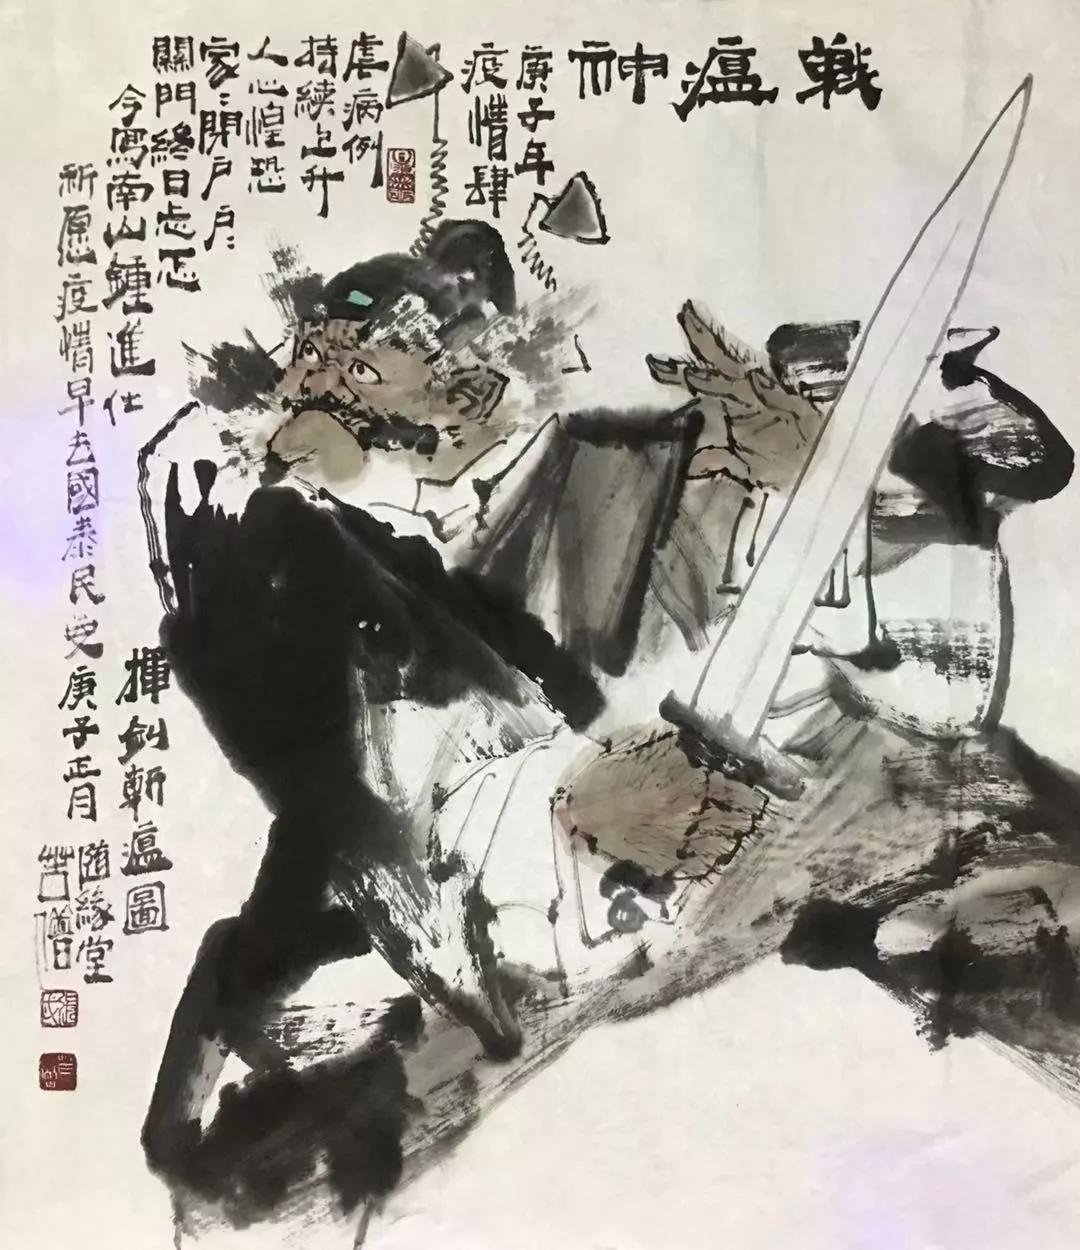 戰瘟神
庚子年
疫情肆
虐病例
持续上升
人心惶恐
家〻閉户户〻
關門終日忐忑
今寫南山鍾進仕
揮剑斬瘟圖
祈愿疫情早去國泰民安庚子正月
随緣堂
苦僧